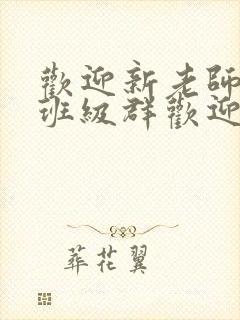 歡迎新老師
班級群歡迎
葬花翼